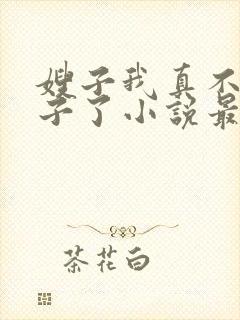 嫂子我真不
子了小説最
茶花白